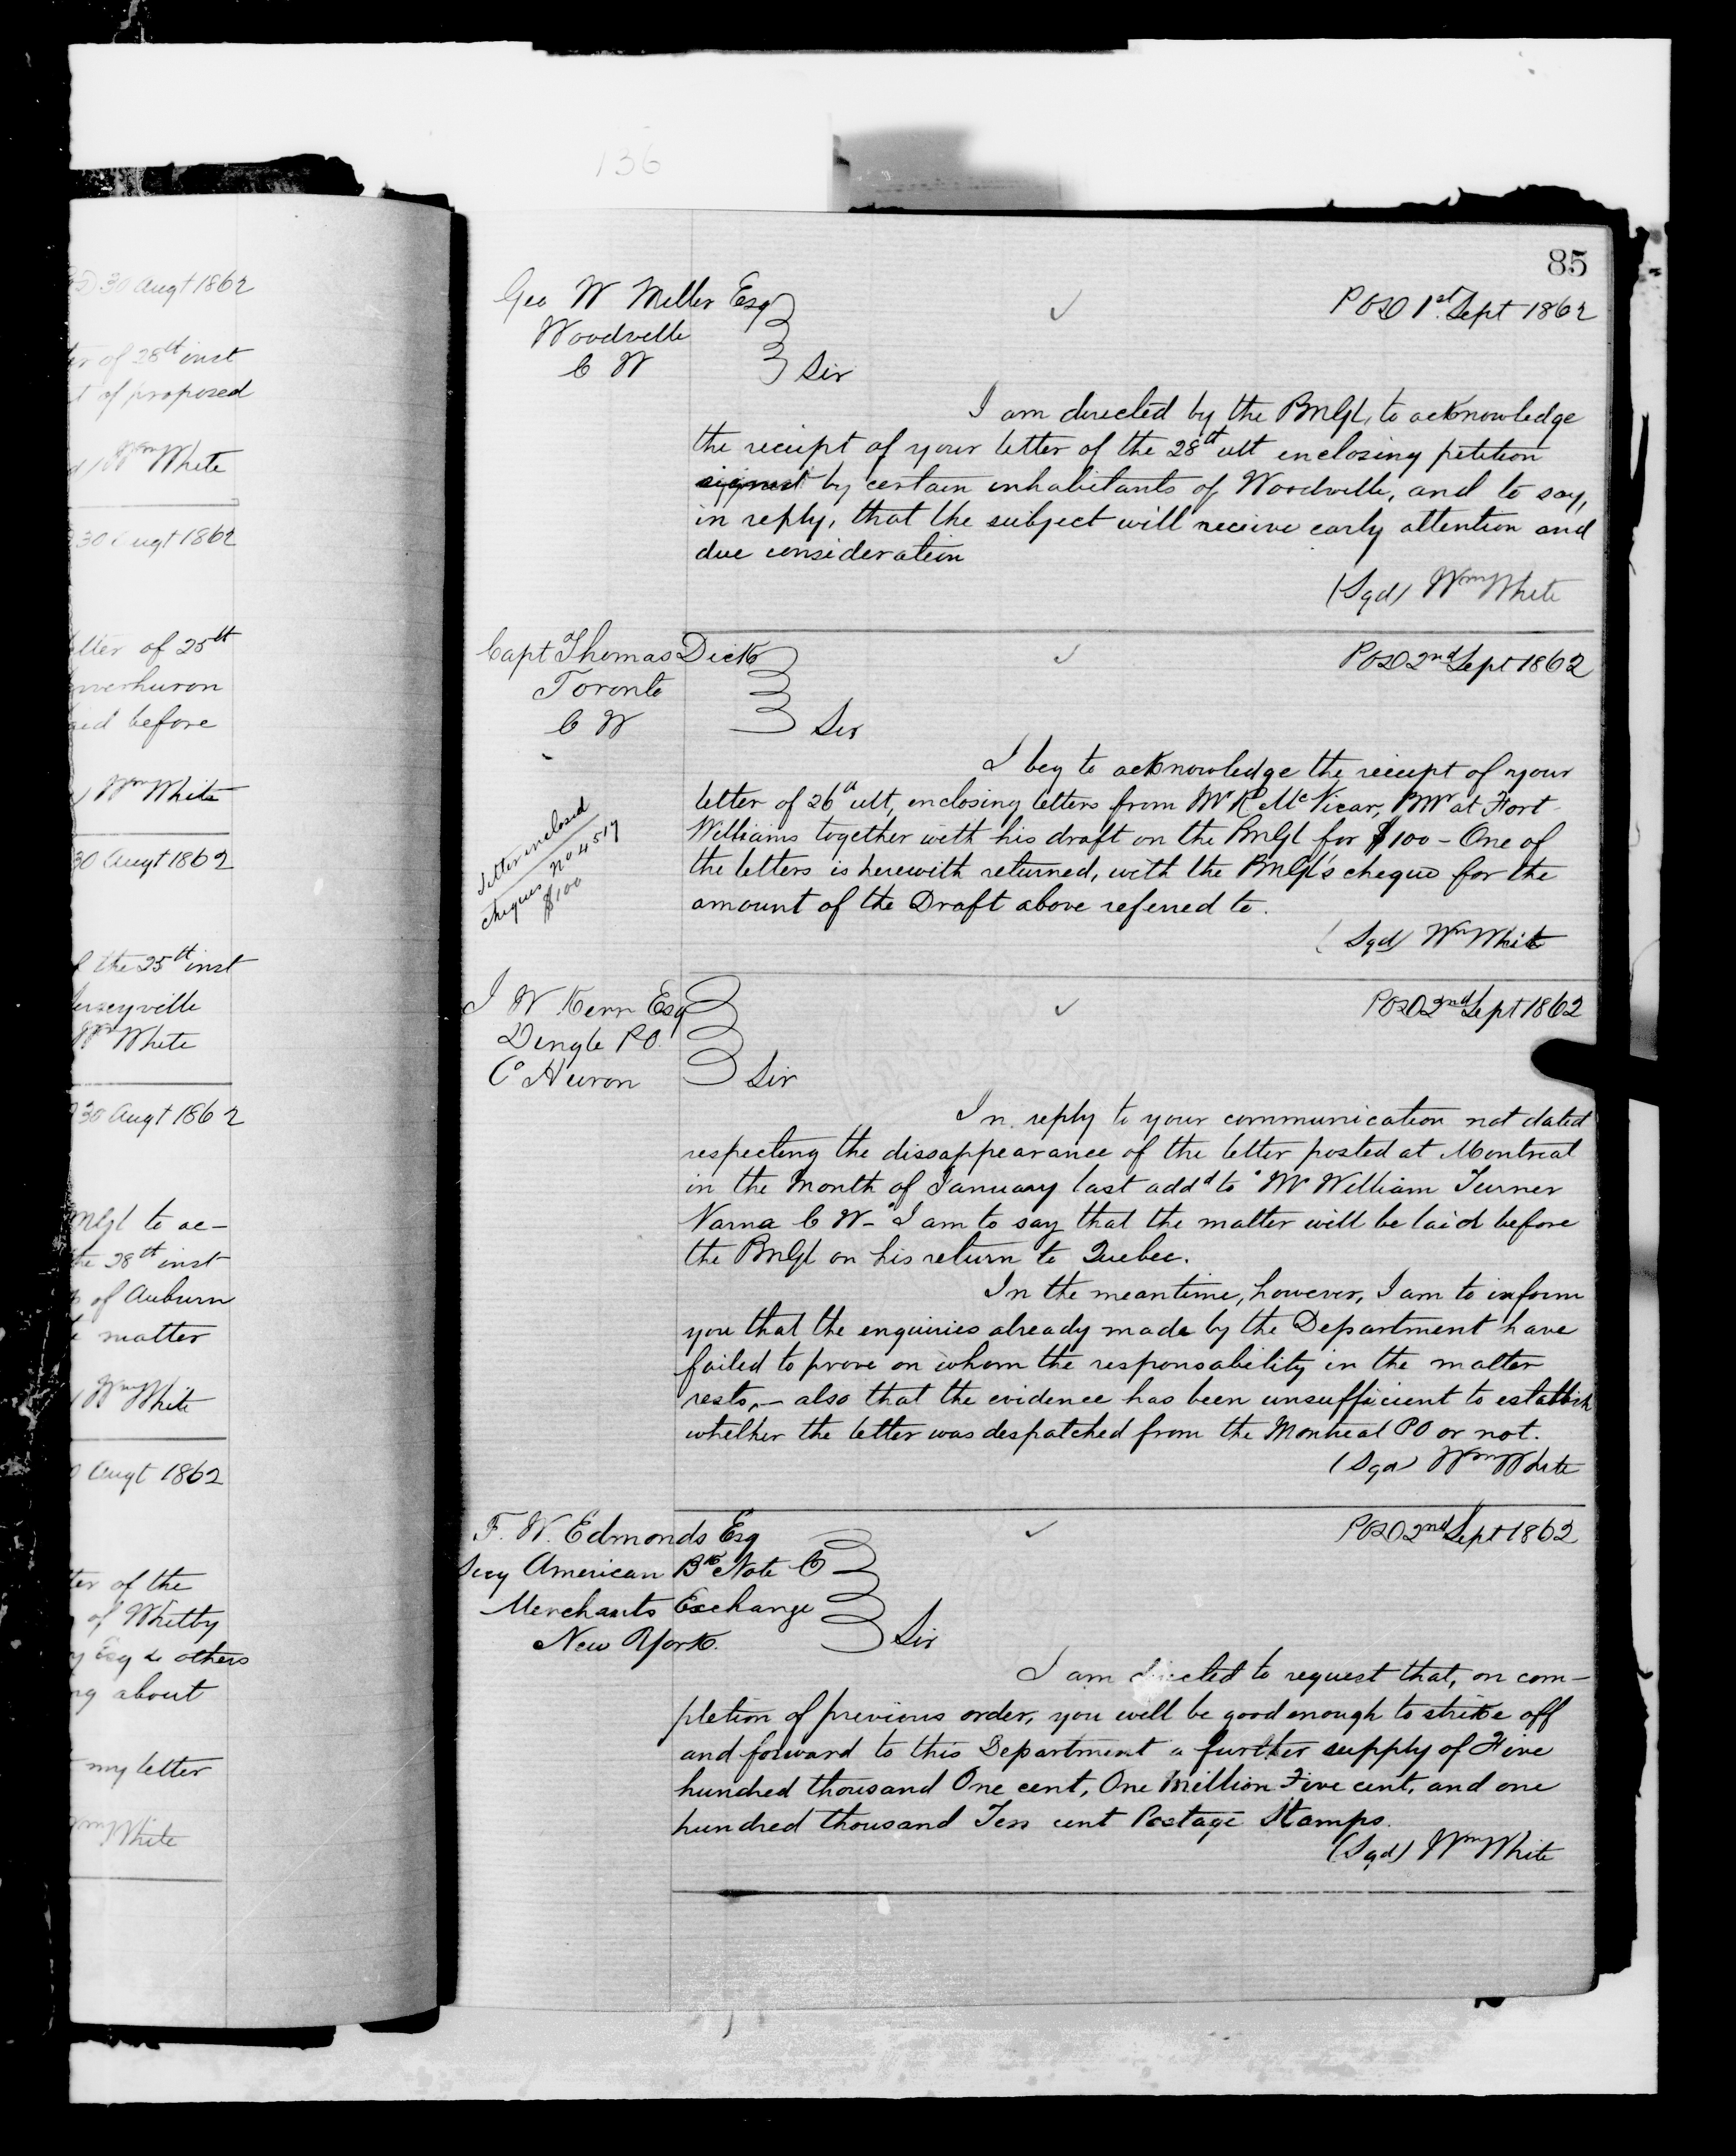 136
30 Augt 1862
of 28th inst
of proposed
Wm White
30 Augt 1862
of 25th
before
Wm White
30 Augt 1862
the 25th inst
Wm White
30 Augt 1862
to ac-
28th inst
of Auburn
matter
Wm White
Augt 1862
of the
of Whitby
Esq & others
about
my letter
White
85
Geo W Miller Esq
POD 1st Sept 1862
Woodville
C W
Sir
I am directed by the PMGl, to acknowledge
the receipt of your letter of the 28th ult enclosing petition
signed by certain inhabitants of Woodville, and to say,
in reply, that the subject will receive early attention and
due consideration
(Sgd) Wm White
Capt Thomas Dick
POD 2nd Sept 1862
Toronto
C W
Sir
I beg to acknowledge the receipt of your
letter of 26th ult, enclosing letters from Mr R McVicar, PMr at Fort
Williams together with his draft on the PMGl for $100 - One of
the letters is herewith returned, with the PMGl's cheque for the
amount of the Draft above referred to.
Letter inclosed
cheque No 4517
$100
(Sgd) Wm White
J W Kerr Esq
POD 2nd Sept 1862
Dingle PO.
Co Huron
Sir
In reply to your communication not dated
respecting the dissappearance of the letter posted at Montreal
in the month of January last addd to "Mr William Turner
Varna C W-" I am to say that the matter will be laid before
the PMGl on his return to Quebec.
In the meantime, however, I am to inform
you that the enquiries already made by the Department have
failed to prove on whom the responsability in the matter
rests,- also that the evidence has been unsufficient to establish
whether the letter was despatched from the Montreal PO or not.
(Sgd) Wm White
F. W. Edmonds Esq
POD 2nd Sept 1862
Secy American Bk Note Co
Merchants Exchange
New York.
Sir
I am directed to request that, on com-
pletion of previous order, you will be good enough to strike off
and forward to this Department a further supply of Five
hundred thousand One cent, One Million Five cent, and one
hundred thousand Ten cent Postage Stamps.
(Sgd) Wm White